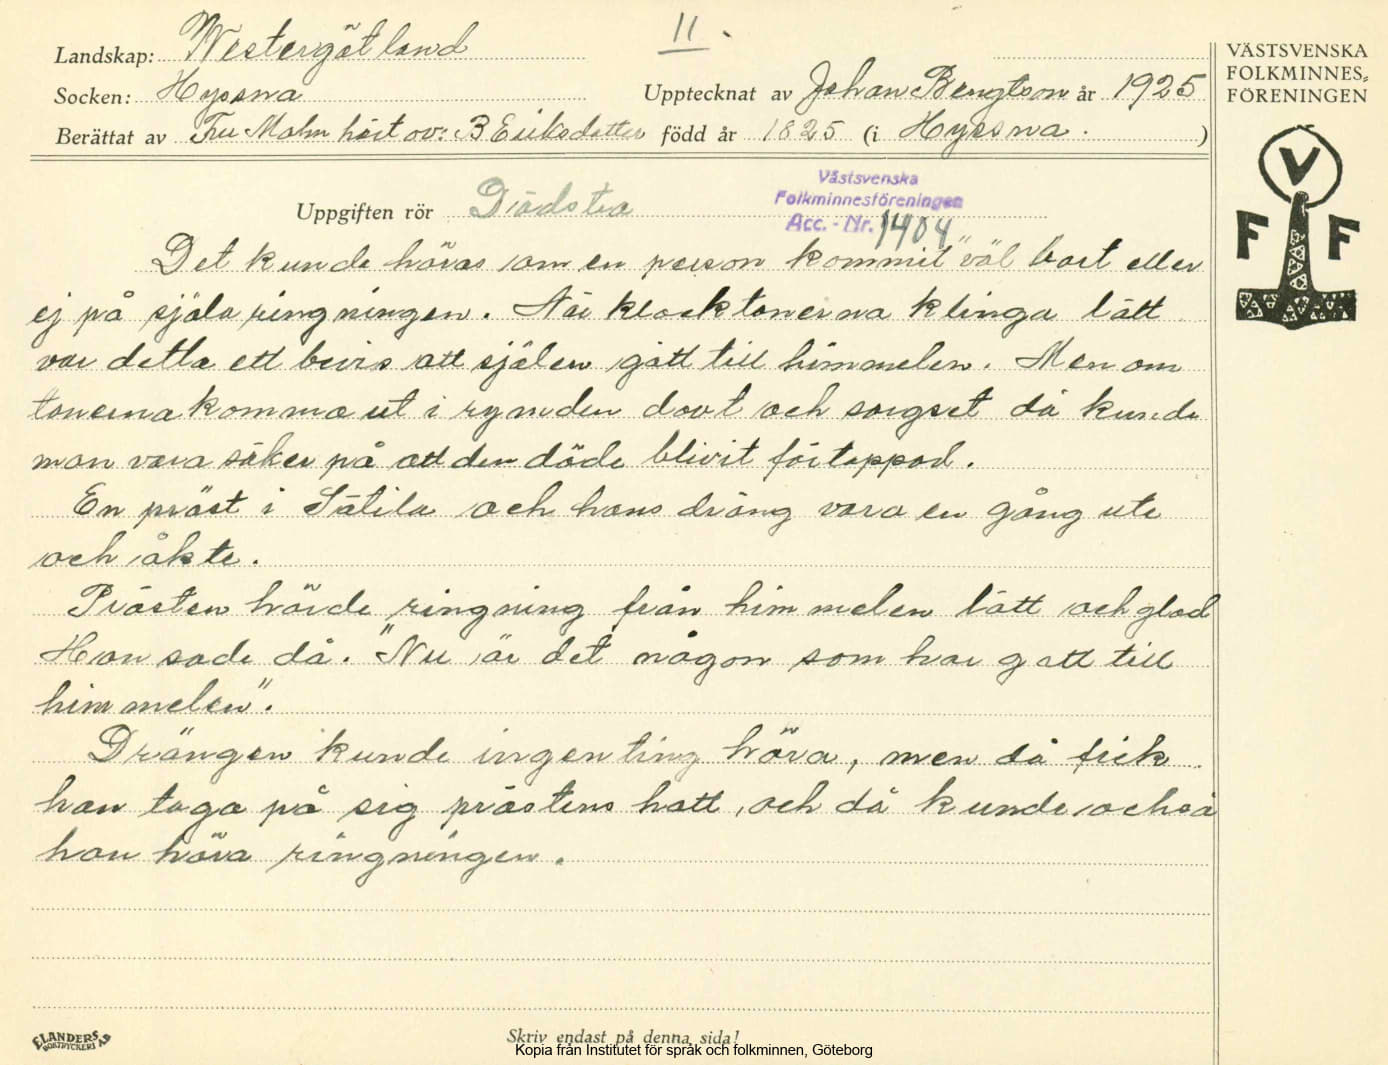 11.
Landskap: Westergötland
VÄSTSVENSKA
FOLKMINNES-
FÖRENINGEN
Socken: Hyssna Upptecknat av Johan Bengtson år 1925
Berättat av Fru Malm hört av: B Eriksdotter född år 1825 (i Hyssna. )
V
F F
Västsvenska
Folkminnesföreningen
Acc.-Nr. 1404
Uppgiften rör Dödstro
Det kunde höras om en person kommit "väl bort eller
ej på själaringningen. När klocktonerna klinga lätt
var detta ett bevis att själen gått till himmelen. Men om
tonerna komma ut i rymden dovt och sorgset då kunde
man vara säker på att den döde blivit förtappad.
En präst i Sätila och hans dräng vara en gång ute
och åkte.
Prästen hörde ringning från himmelen lätt och glad
Han sade då. "Nu är det någon som har gått till
himmelen".
Drängen kunde ingenting höra, men då fick
han taga på sig prästens hatt, och då kunde också
han höra ringningen.
ELANDERS
BOKTRYCKERI AB
Skriv endast på denna sida!
Kopia från Institutet för språk och folkminnen, Göteborg